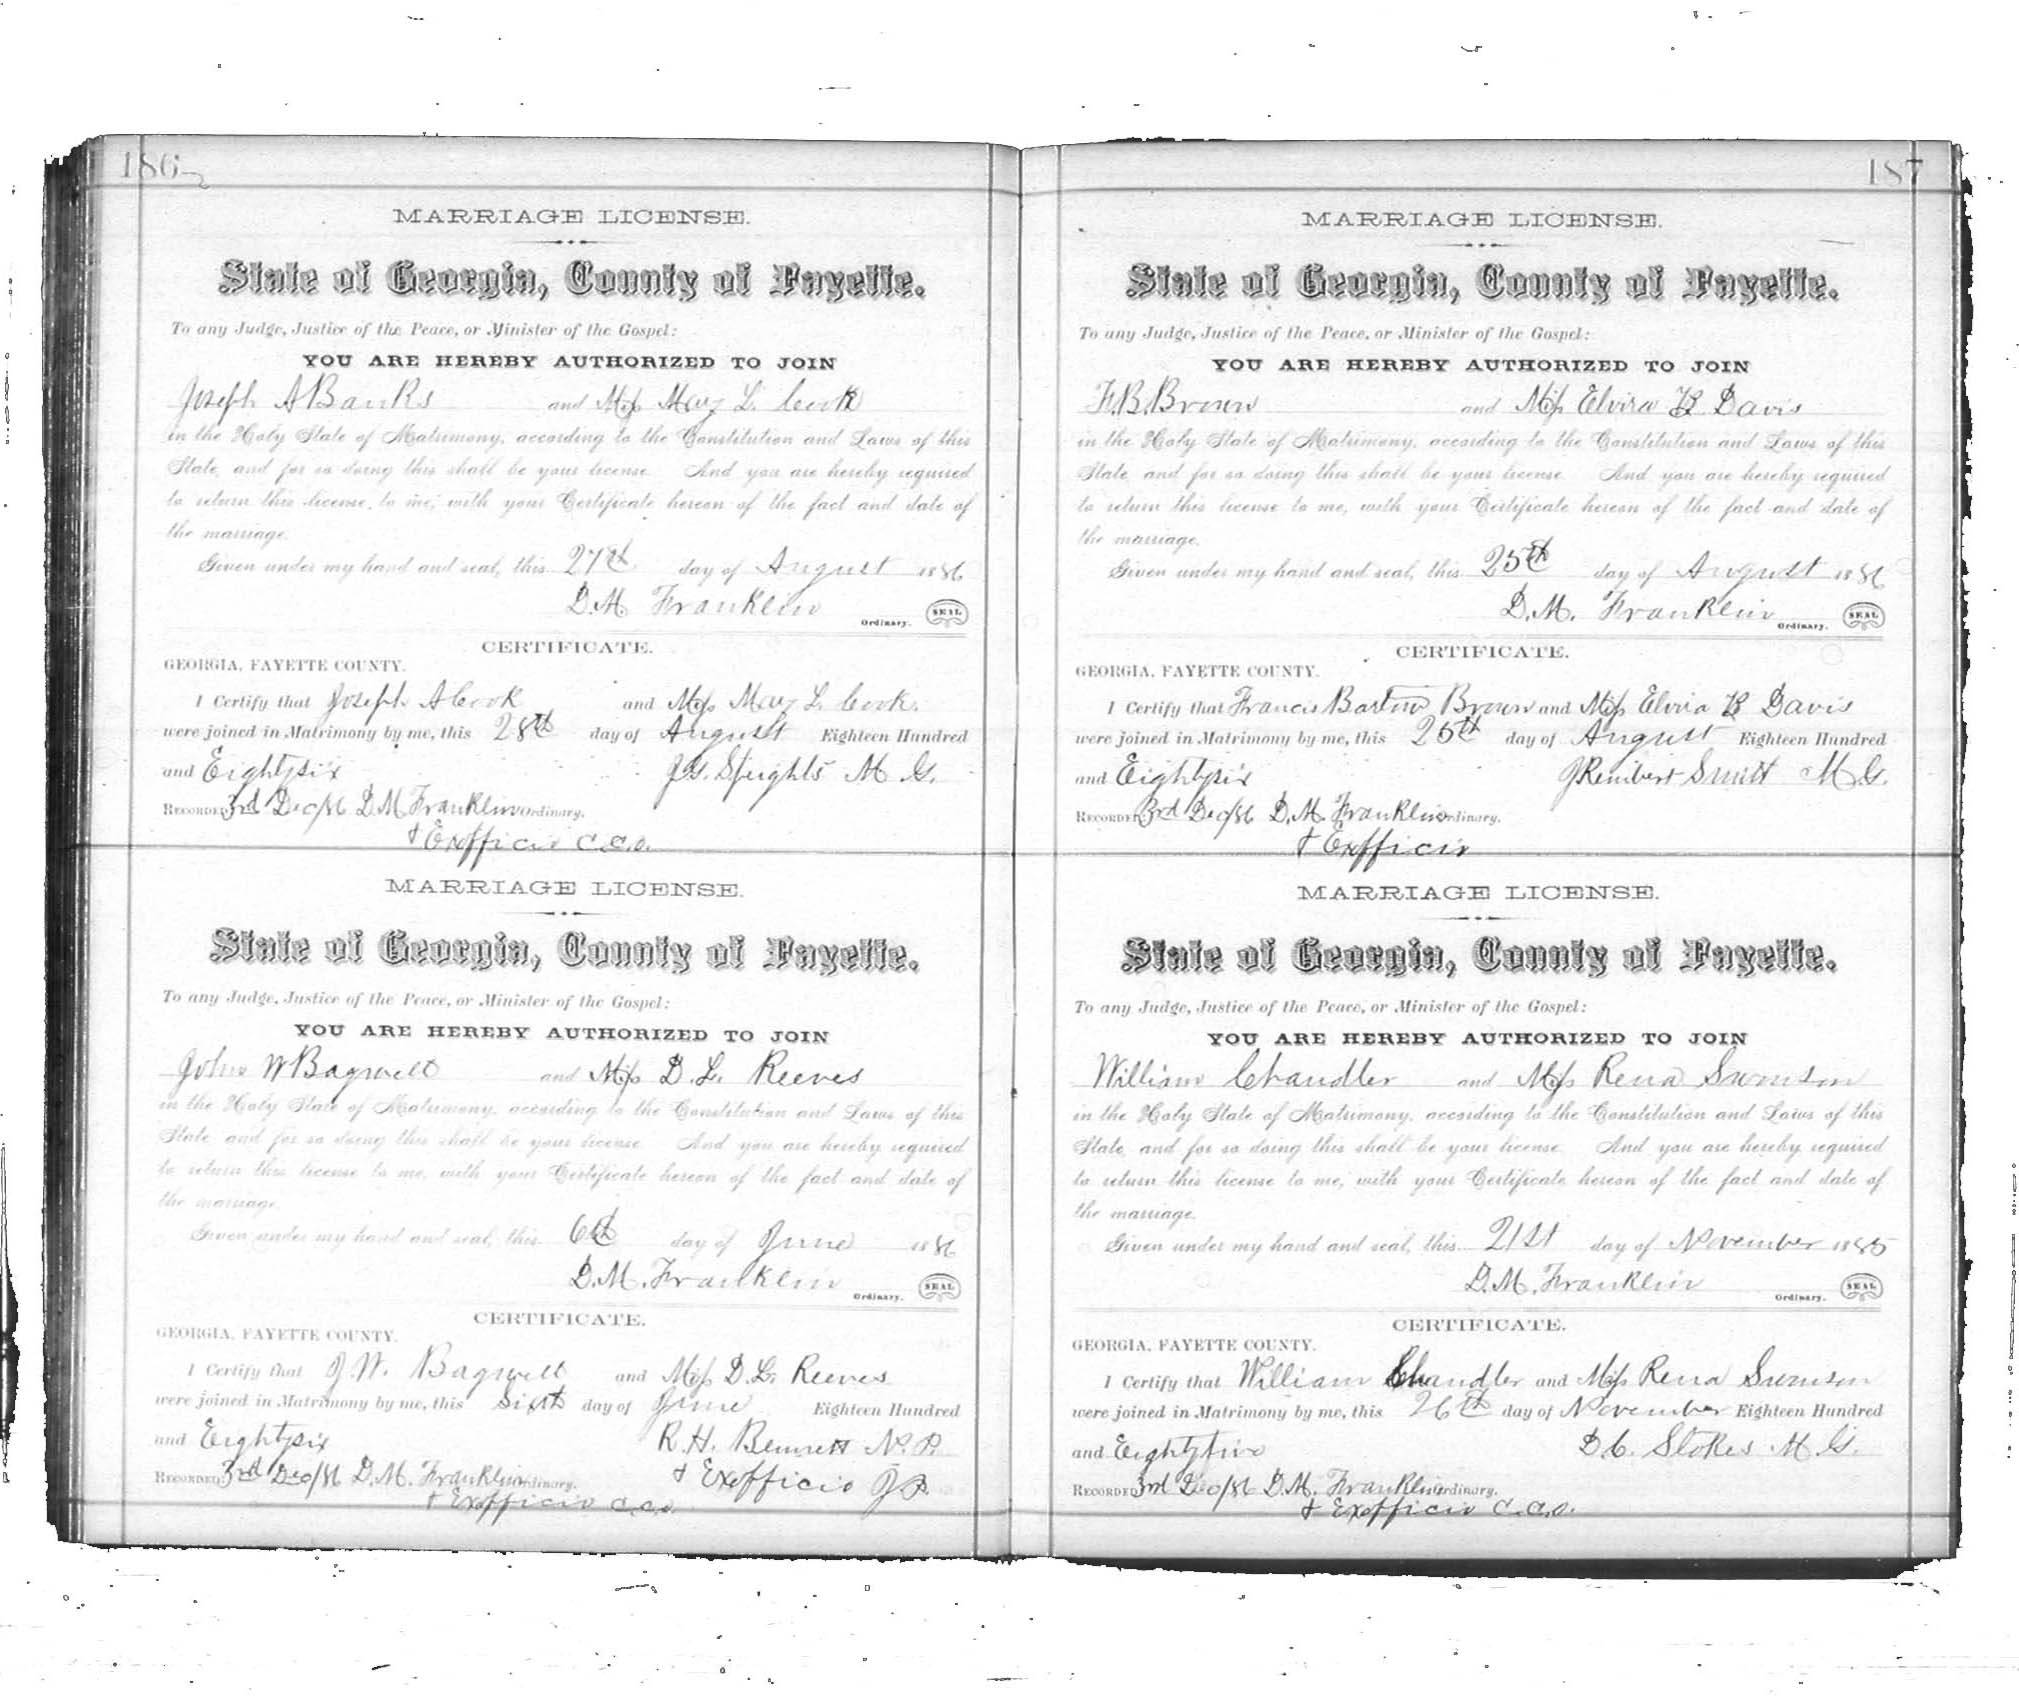 186
MARRIAGE LICENSE.
State of Georgia, County of Fayette.
To any Judge, Justice of the Peace, or Minister of the Gospel:
YOU ARE HEREBY AUTHORIZED TO JOIN
Joseph A Banks and Miss May L. Cook
in the Holy State of Matrimony, according to the Constitution and Laws of this
State, and for so doing this shall be your license. And you are hereby required
to return this license to me, with your Certificate hereon of the fact and date of
the marriage.
Given under my hand and seal, this 27th day of August 1886
D.M. Franklin
Ordinary. SEAL
CERTIFICATE.
GEORGIA, FAYETTE COUNTY.
I Certify that Joseph A Cook and Miss May L. Cook.
were joined in Matrimony by me, this 28th day of August Eighteen Hundred
and Eightysix J.G. Speights M.G.
RECORDED 3rd Dec/86 D.M. Franklin Ordinary.
& Exofficio C.C.O.
MARRIAGE LICENSE.
State of Georgia, County of Fayette.
To any Judge, Justice of the Peace, or Minister of the Gospel:
YOU ARE HEREBY AUTHORIZED TO JOIN
John W Bagwell and Miss D. L. Reeves
in the Holy State of Matrimony, according to the Constitution and Laws of this
State, and for so doing this shall be your license. And you are hereby required
to return this license to me, with your Certificate hereon of the fact and date of
the marriage.
Given under my hand and seal, this 6th day of June 1886
D.M. Franklin
Ordinary. SEAL
CERTIFICATE.
GEORGIA, FAYETTE COUNTY.
I Certify that J.W. Bagwell and Miss D.L. Reeves
were joined in Matrimony by me, this Sixth day of June Eighteen Hundred
and Eightysix R.H. Bennett N.P.
RECORDED 3rd Dec/86 D.M. Franklin Ordinary. & Exofficio J P.
& Exofficio C.C.O.
187
MARRIAGE LICENSE.
State of Georgia, County of Fayette.
To any Judge, Justice of the Peace, or Minister of the Gospel:
YOU ARE HEREBY AUTHORIZED TO JOIN
F.B. Brown and Miss Elvira B Davis
in the Holy State of Matrimony, according to the Constitution and Laws of this
State, and for so doing this shall be your license. And you are hereby required
to return this license to me, with your Certificate hereon of the fact and date of
the marriage.
Given under my hand and seal, this 25th day of August 1886
D.M. Franklin
Ordinary. SEAL
CERTIFICATE.
GEORGIA, FAYETTE COUNTY.
I Certify that Francis Bartow Brown and Miss Elvira B Davis
were joined in Matrimony by me, this 25th day of August Eighteen Hundred
and Eightysix J Rembert Smith M.G.
RECORDED 3rd Dec/86 D.M. Franklin Ordinary.
& Exofficio
MARRIAGE LICENSE.
State of Georgia, County of Fayette.
To any Judge, Justice of the Peace, or Minister of the Gospel:
YOU ARE HEREBY AUTHORIZED TO JOIN
William Chandler and Miss Rena Swinson
in the Holy State of Matrimony, according to the Constitution and Laws of this
State, and for so doing this shall be your license. And you are hereby required
to return this license to me, with your Certificate hereon of the fact and date of
the marriage.
Given under my hand and seal, this 21st day of November 1885
D.M. Franklin
Ordinary. SEAL
CERTIFICATE.
GEORGIA, FAYETTE COUNTY.
I Certify that William Chandler and Miss Rena Swinson
were joined in Matrimony by me, this 26th day of November Eighteen Hundred
and Eightyfive D.C. Stokes M.G.
RECORDED 3rd Dec/86 D.M. Franklin Ordinary.
& Exofficio C.C.O.